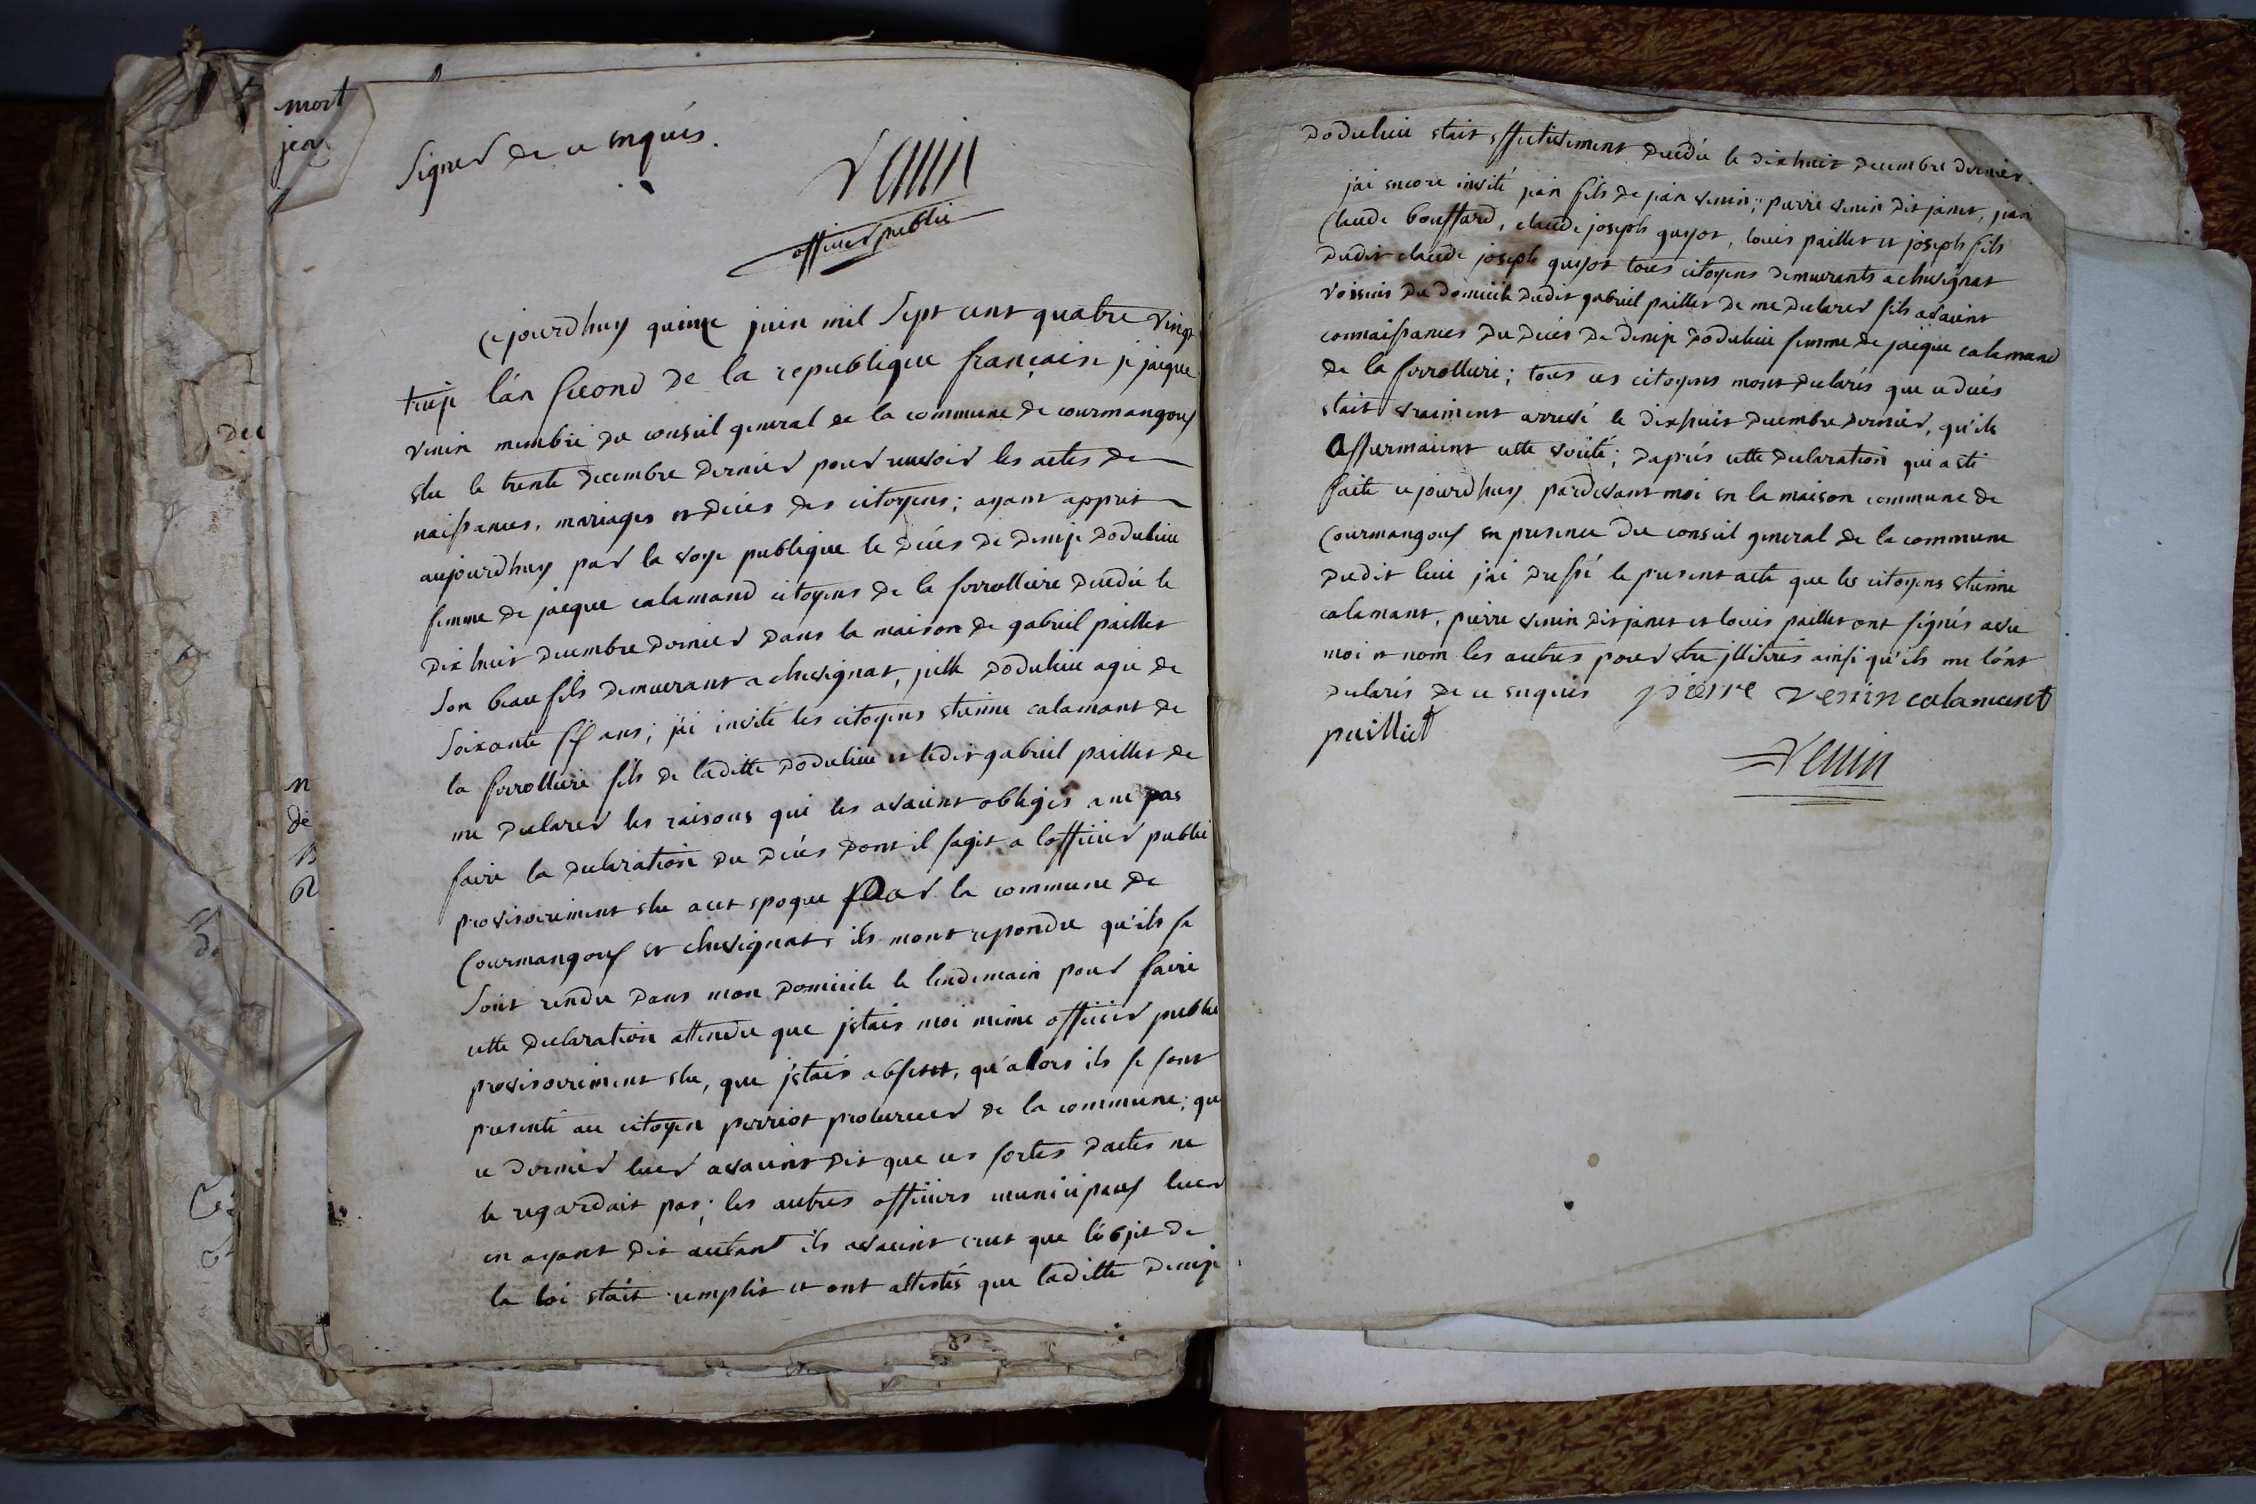 mort
jean
signer de ce enquis.
Venin
officier public
cejourdhuy quinze juin mil sept cent quatre vingt
treize l'an second de la republique française je jacque
venin membre du conseil general de la commune de courmangoux
elu le trente decembre dernier pour recevoir les actes de
naissances, mariages et décès des citoyens; ayant apprit
aujourdhuy par la voye publique le décès de denise
femme de jacque calamand citoyens de la forrollière decedée le
dix huit decembre dernier dans la maison de gabriel paillet
son beau fils demeurant a chevignat, icelle agée de
soixante ans; j'ai invité les citoyens etienne calamant de
la forrollière fils de laditte et ledit gabriel paillet de
me declarer les raisons qui les avaient obligés a ne pas
faire la declaration du décès dont il sagit a lofficier public
provisoirement elu a cet epoque par la commune de
Courmangoux et chevignat, ils mont repondu qu'ils se
sont rendu dans mon domicile le lendemain pour faire
cette declaration attendu que jetais moi meme officier public
provisoirement elu, que j'etais absent, qu'alors ils se sont
presenté au citoyen perriot procureur de la commune; que
ce dernier leur avaient dit que ces sortes dactes ne
le regardait pas; les autres officiers municipaux leur
en ayant dit autant ils avaient crut que lobjet de
la loi etait remplit et ont attestés que laditte denise
etait effectivement decedée le dixhuit decembre dernier.
j'ai encore invité jean fils de jean venin, pierre venin dit janet, jean
claude bouffard, claude joseph guyot, louis paillet et joseph fils
dudit claude joseph guyot tous citoyens demeurants a chevignat
voisins du domicile dudit gabriel paillet de me declarer sils avaient
connaissances du décès de denise femme de jacque calamand
de la forrolliere; tous ces citoyens mont declarés que ce décès
etait vraiment arrivé le dixhuit decembre dernier, qu'ils
affirmaient cette vérité; daprés cette declaration qui a eté
faite cejourdhuy pardevant moi en la maison commune de
Courmangoux en presence du conseil general de la commune
dudit lieu j'ai dressé le present acte que les citoyens etienne
calamant, pierre venin dit janet et louis paillet ont signés avec
moi et nom les autres pour etre illitérés ainsi qu'ils me lont
declarés de ce enquis pierre venin calamant
paillet
Venin